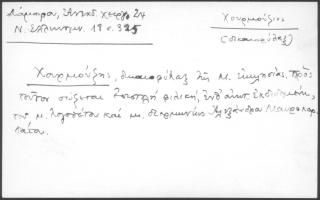 Λάμπρου, Ἀντικ. χειρ. 24
Ν. Ἑλληνομν. 18 σ. 325
Χουρμούζιος
(δικαιοφύλαξ)
Χουρμούζης, δικαιοφύλαξ τῆς Μ. Ἐκκλησίας. πρὸς
τοῦτον σώζεται ἐπιστολὴ φιλική,
τοῦ μ. λογοθέτου καὶ μ. διερμηνέως Ἀλεξάνδρου Μαυροκορ-
δάτου.